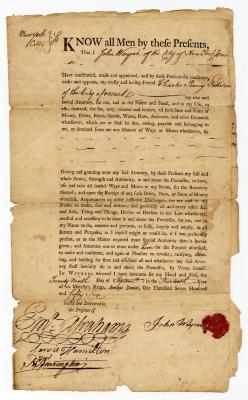 KNOW all Men by these Presents,
That I John Wayne of the City of New York
Have constituted, made and appointed, and by these Presents do constitute,
make and appoint, my trusty and loving Friend Charles
of the City aforesaid my true and
lawful Attorney, for me, and in my Name and Stead, and to my Use, to
ask, demand, sue for, levy, recover and receive, all such Sum and Sums of
Money, Debts, Rents, Goods, Wares, Dues, Accounts, and other Demands
whatsoever, which are or shall be due, owing, payable and belonging to
me, or detained from me any Manner of Ways or Means whatsoever, by
Giving and granting unto my said Attorney, by these Presents my full and
whole Power, Strength and Authority, in and about the Premisses, to have,
use and take all lawful Ways and Means in my Name, for the Recovery
thereof; and upon the Receipt of any such Debts, Dues, or Sums of Money
aforesaid, Acquittances or other sufficient Discharges, for me and in my
Name, to make, seal and deliver; and generally all and every other Act
and Acts, Thing and Things, Device or Devices in the Law whatsoever,
needful and necessary to be done in and about the Premisses, for me, and in
my Name to do, execute and perform, as fully, largely and amply, to all
Intents and Purposes, as I myself might or could do, if I was personally
present, or as if the Matter required more special Authority than is herein
given; and Attornies one or more under him for the Purpose aforesaid,
to make and constitute, and again at Pleasure to revoke; ratifying, allow-
ing, and holding for firm and effectual all and whatsoever my said Attor-
ney shall lawfully do in and about the Premisses, by Virtue hereof.
IN WITNESS whereof I have hereunto set my Hand and Seal, the
Twenty Ninth Day of in the
Year of His Majesty's Reign, Annoque Domini, One Thousand Seven Hundred
and fifty Six
Sealed and Delivered in
the Presence of
Abrahams
John Wayne
Hamilton
Harrington